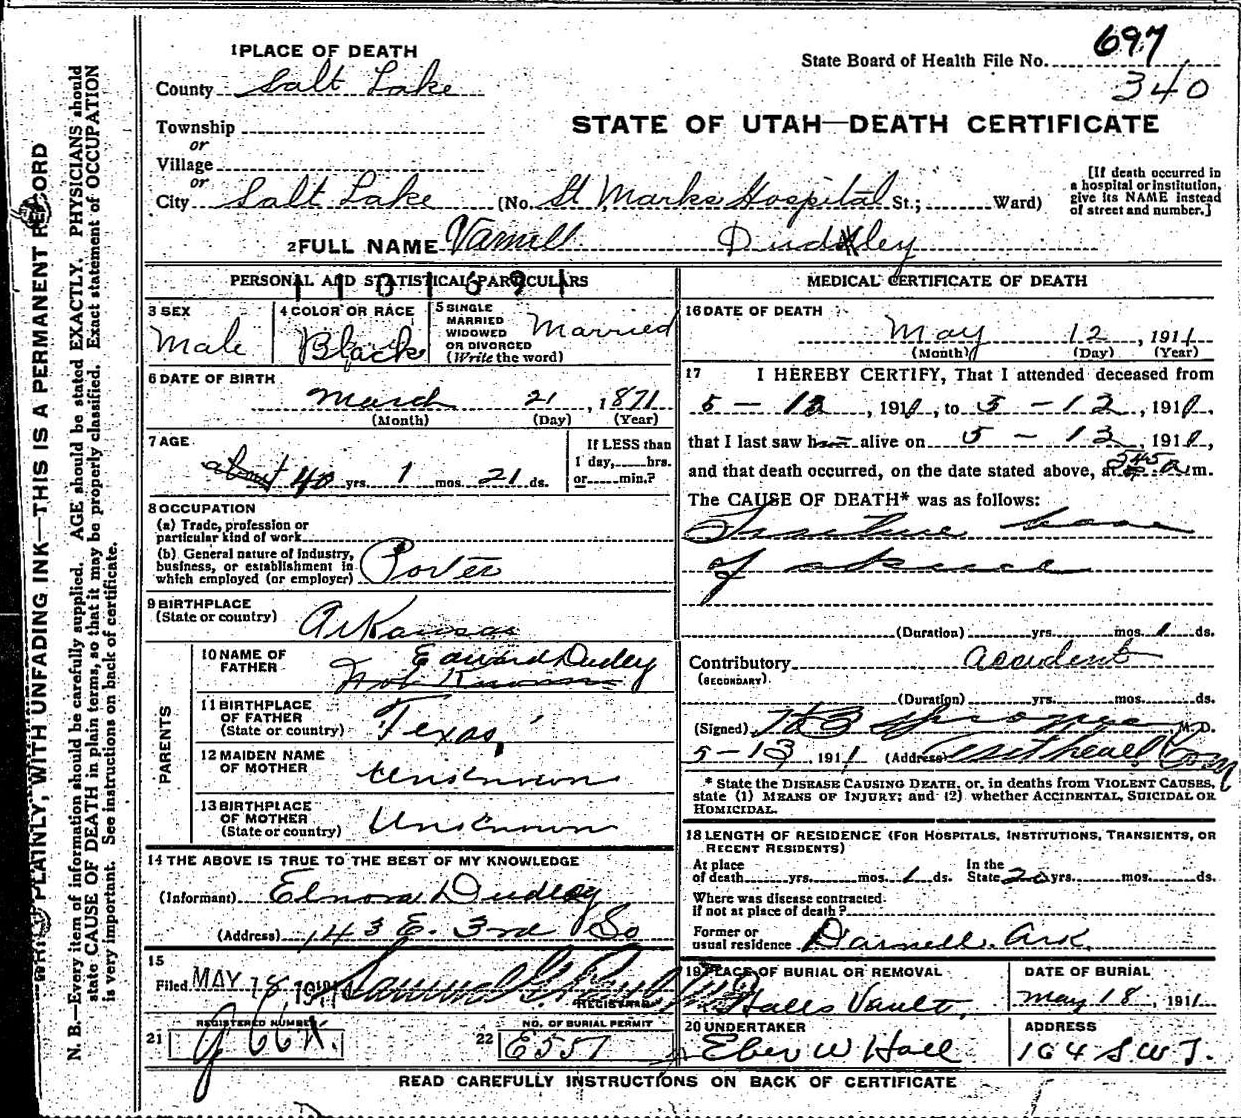 1 PLACE OF DEATH
County Salt Lake
Township
or
Village
or
City Salt Lake (No. St Marks Hospital St.; Ward)
State Board of Health File No. 697
340
STATE OF UTAH—DEATH CERTIFICATE
[If death occurred in
a hospital or institution,
give its NAME instead
of street and number.]
2 FULL NAME Varnell Dudley
1101691
PERSONAL AND STATISTICAL PARTICULARS
3 SEX
Male
4 COLOR OR RACE
Black
5 SINGLE
MARRIED
WIDOWED
OR DIVORCED
(Write the word)
Married
6 DATE OF BIRTH
March 21, 1871
(Month) (Day) (Year)
7 AGE
about 40 yrs. 1 mos. 21 ds.
If LESS than
1 day, hrs.
or min.?
8 OCCUPATION
(a) Trade, profession or
particular kind of work
(b) General nature of industry,
business, or establishment in
which employed (or employer) Porter
9 BIRTHPLACE
(State or country) Arkansas
PARENTS
10 NAME OF
FATHER
Edward Dudley
Not Known
11 BIRTHPLACE
OF FATHER
(State or country) Texas
12 MAIDEN NAME
OF MOTHER Unknown
13 BIRTHPLACE
OF MOTHER
(State or country) Unknown
14 THE ABOVE IS TRUE TO THE BEST OF MY KNOWLEDGE
(Informant) Elnora Dudley
(Address) 143 E. 3rd So
15
Filed MAY 18, 1911 Samuel G. Paul
REGISTRAR
21 REGISTERED NUMBER
22 NO. OF BURIAL PERMIT
E557
MEDICAL CERTIFICATE OF DEATH
16 DATE OF DEATH
May 12, 1911
(Month) (Day) (Year)
17 I HEREBY CERTIFY, That I attended deceased from
5-12, 1911, to 5-12, 1911,
that I last saw h alive on 5-12, 1911,
and that death occurred, on the date stated above, at m.
The CAUSE OF DEATH* was as follows:
Fracture base
of skull
(Duration) yrs. mos. 1 ds.
Contributory accident
(SECONDARY)
(Duration) yrs. mos. ds.
(Signed) M. D.
5-13, 1911 (Address)
* State the DISEASE CAUSING DEATH, or, in deaths from VIOLENT CAUSES,
state (1) MEANS OF INJURY; and (2) whether ACCIDENTAL, SUICIDAL OR
HOMICIDAL.
18 LENGTH OF RESIDENCE (FOR HOSPITALS, INSTITUTIONS, TRANSIENTS, OR
RECENT RESIDENTS)
At place
of death yrs. mos. 1 ds.
In the
State 20 yrs. mos. ds.
Where was disease contracted
if not at place of death?
Former or
usual residence Darnell. Ark.
19 PLACE OF BURIAL OR REMOVAL
Halls Vault,
DATE OF BURIAL
May 18, 1911
20 UNDERTAKER
Eber W Hall
ADDRESS
164 S W T.
READ CAREFULLY INSTRUCTIONS ON BACK OF CERTIFICATE
WRITE PLAINLY, WITH UNFADING INK—THIS IS A PERMANENT RECORD
N. B.—Every item of information should be carefully supplied. AGE should be stated EXACTLY. PHYSICIANS should
state CAUSE OF DEATH in plain terms, so that it may be properly classified. Exact statement of OCCUPATION
is very important. See instructions on back of certificate.